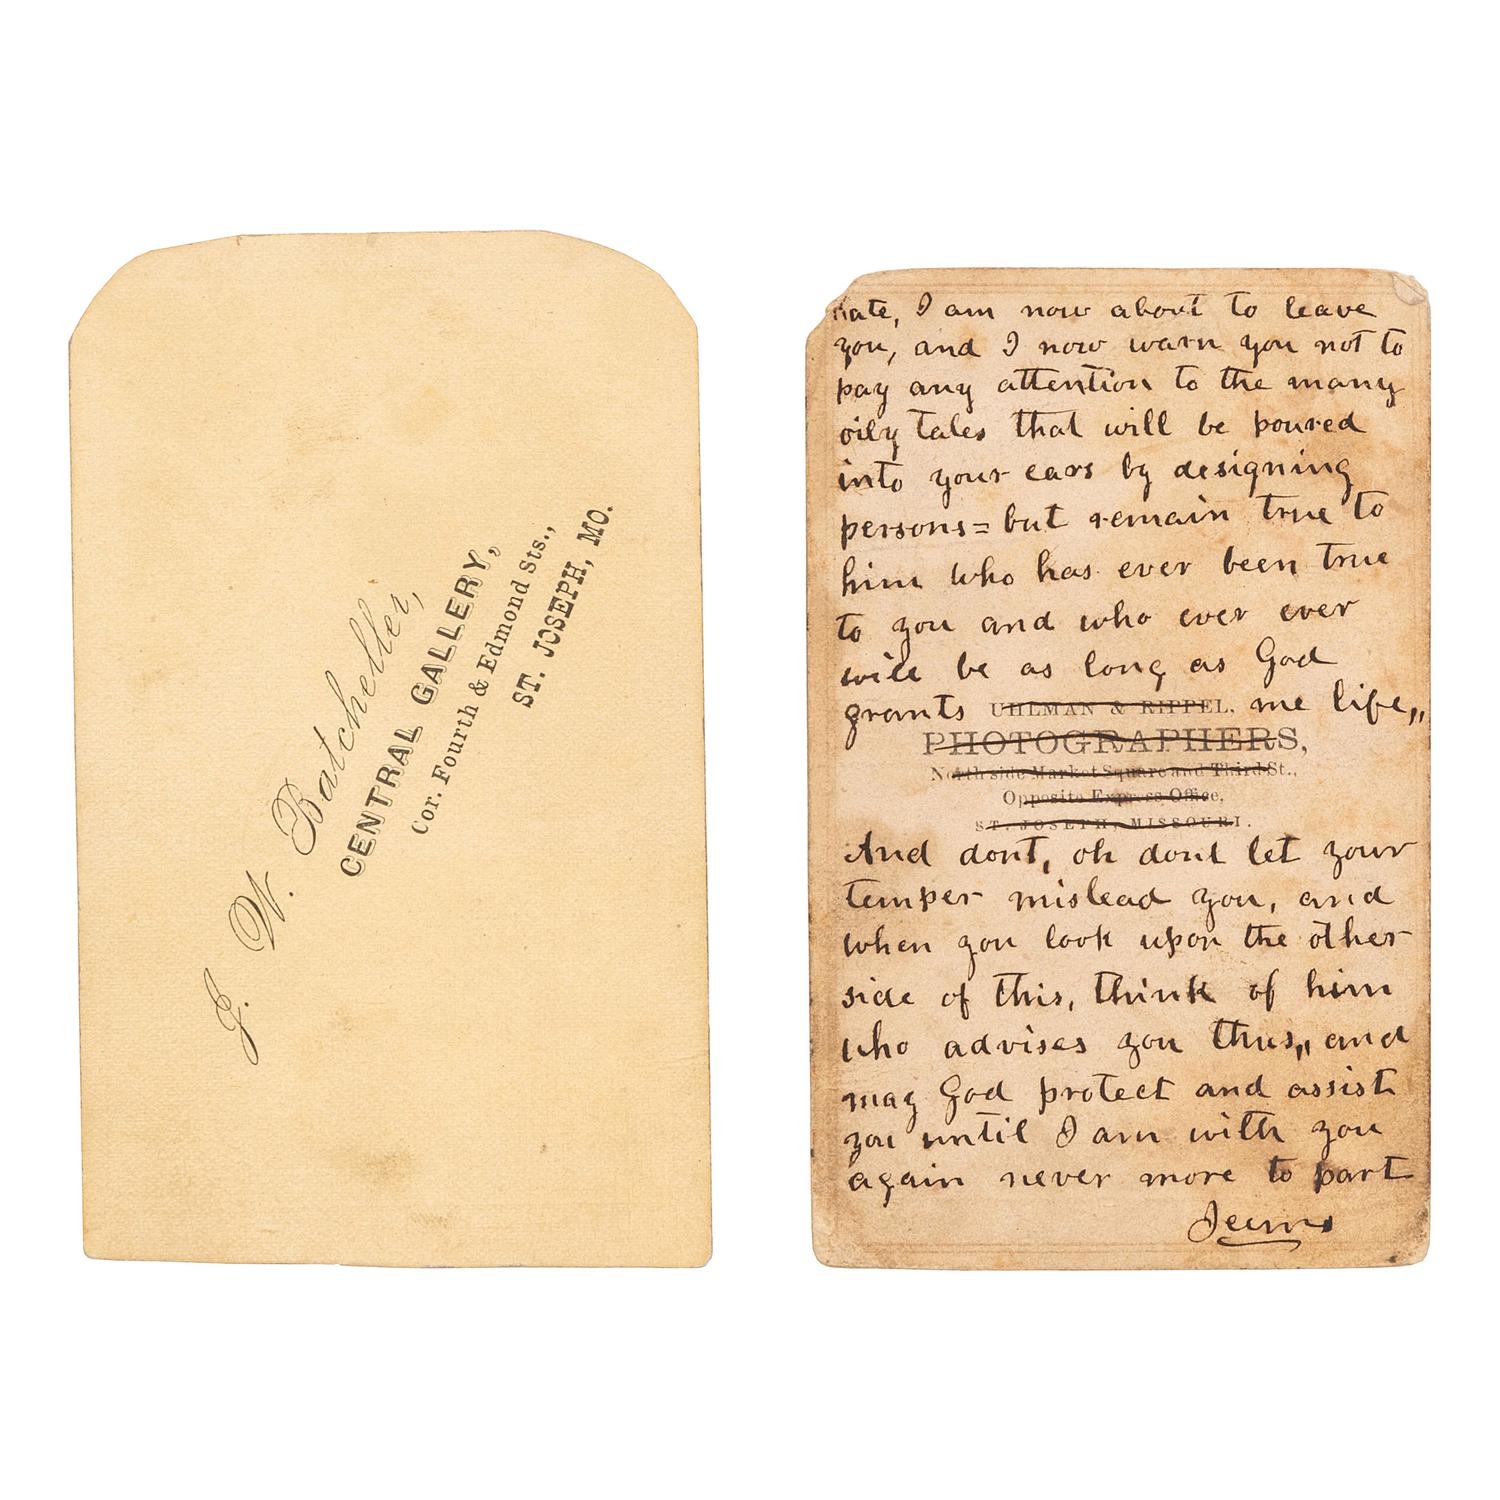 J. W. Batcheller,
CENTRAL GALLERY,
Cor. Fourth & Edmond Sts.,
ST. JOSEPH, MO.
I am now about to leave
you, and I now warn you not to
pay any attention to the many
oily tales that will be poured
into your ears by designing
persons = but remain true to
him who has ever been true
to you and who ever ever
will be as long as God
grants me life,,
UHLMAN & RIPPEL,
PHOTOGRAPHERS,
North side Market Square and Third St.,
Opposite Express Office,
ST. JOSEPH, MISSOURI.
And dont, oh dont let your
temper mislead you, and
when you look upon the other
side of this, think of him
who advises you thus,, and
may God protect and assist
you until I am with you
again never more to part
Jeems